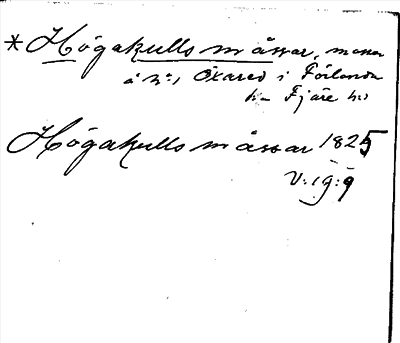 * Högakulls måssar, mossar
å nr 1 Öxared i Förlanda
sn Fjäre hd
Högakulls måssar 1825
V:19:9